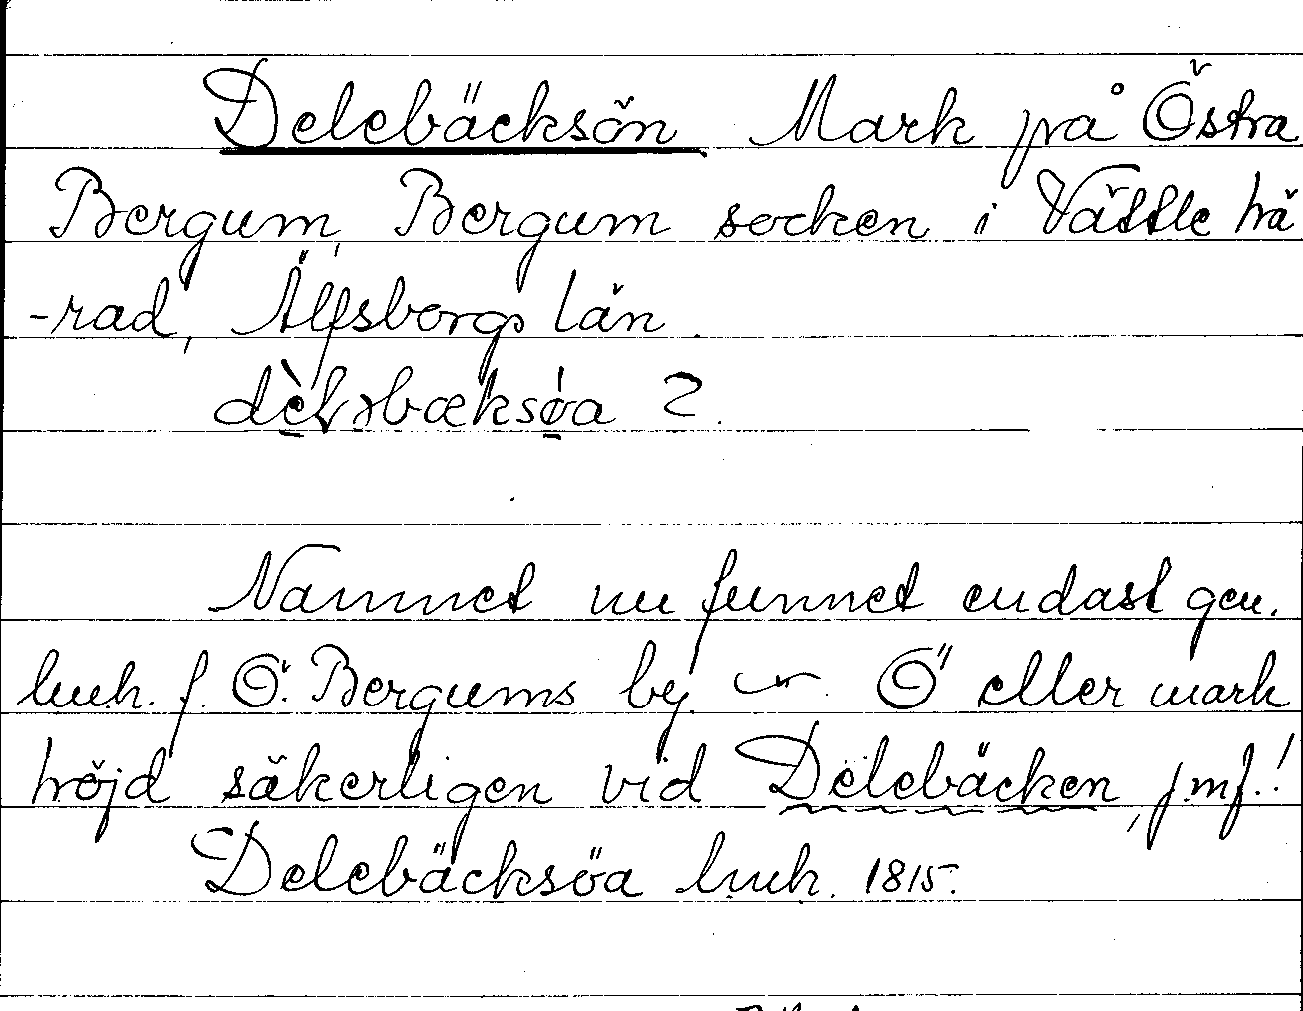 Delebäcksön Mark på Östra
Bergum, Bergum socken i Vättle hä
-rad, Älfsborgs län.
dèlɘbæksøa 2.
Namnet nu funnet endast gen.
luuh. f. Ö. Bergums by. ~ Ö eller mark
höjd säkerligen vid Delebäcken, jmf.!
Delebäcksöa luuh. 1815.